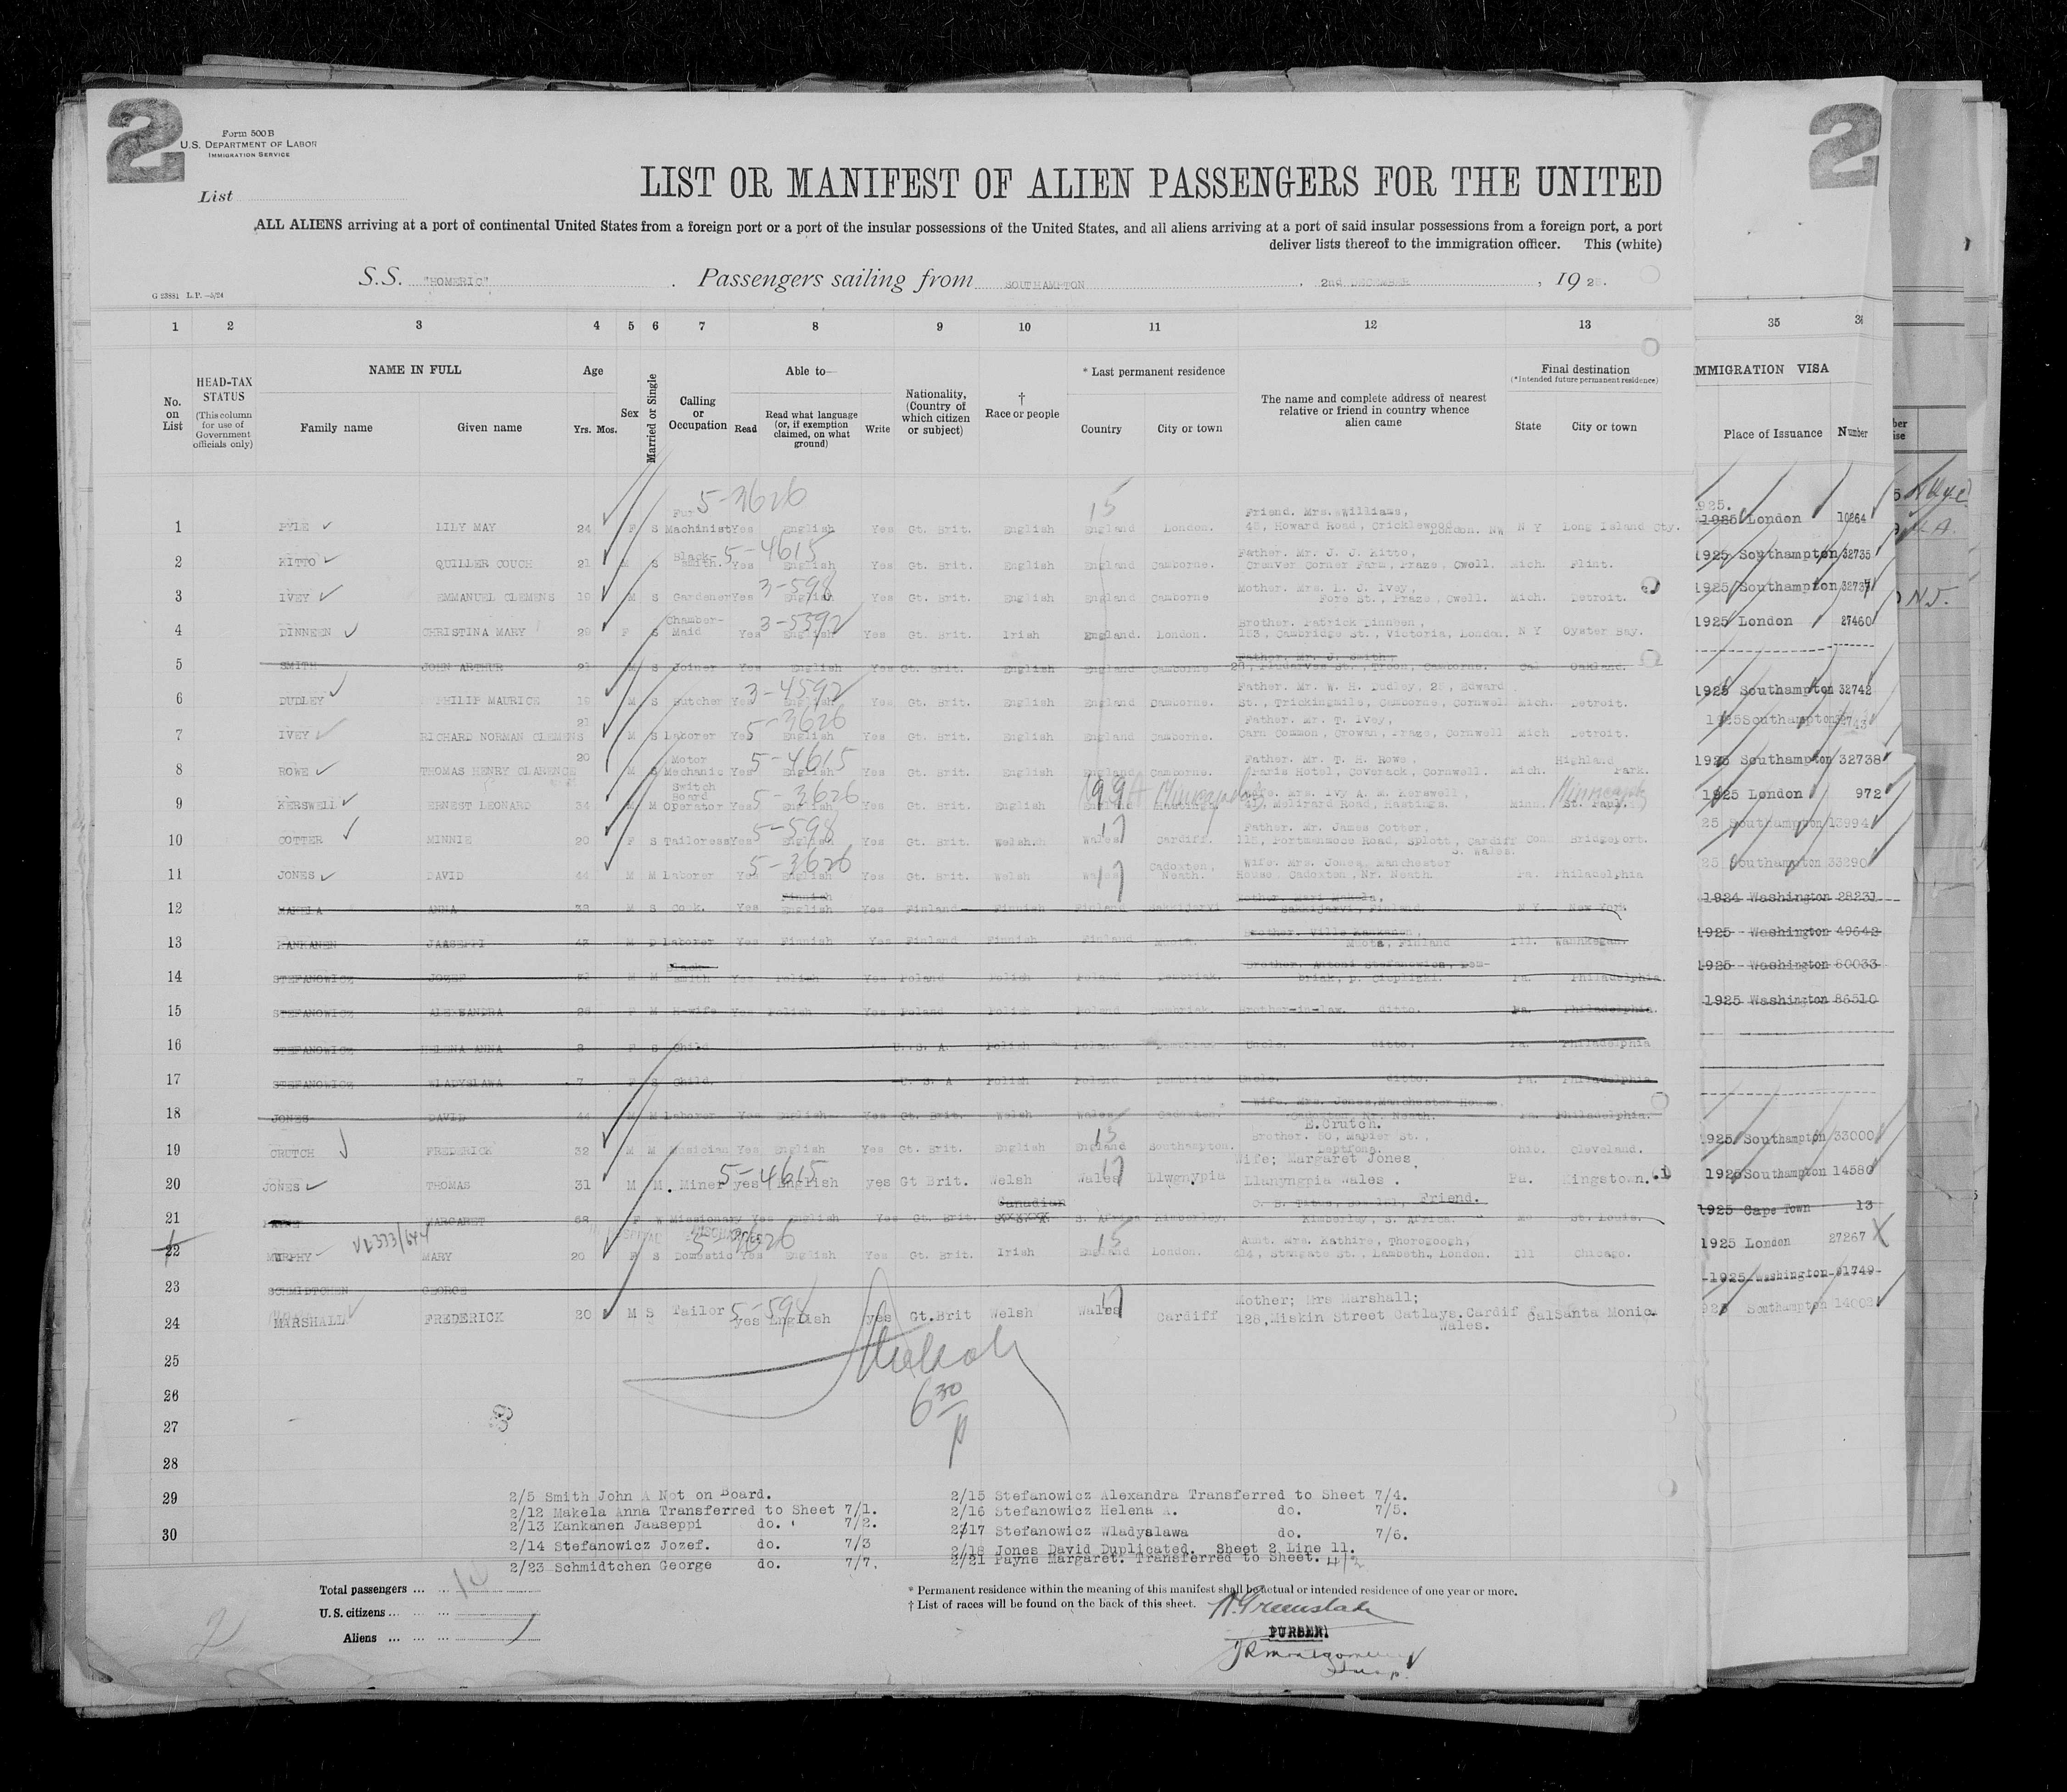 2
Form 500 B
U.S. DEPARTMENT OF LABOR
IMMIGRATION SERVICE
2
List
LIST OR MANIFEST OF ALIEN PASSENGERS FOR THE UNITED
ALL ALIENS arriving at a port of continental United States from a foreign port or a port of the insular possessions of the United States, and all aliens arriving at a port of said insular possessions from a foreign port, a port
deliver lists thereof to the immigration officer. This (white)
S.S. "HOMERIC" . Passengers sailing from SOUTHAMPTON , 2nd DECEMBER , 19 25.
G 23881 L.P.—5/24
1 2 3 4 5 6 7 8 9 10 11 12 13 35
No. on List
HEAD-TAX STATUS (This column for use of Government officials only)
NAME IN FULL
Family name Given name
Age Yrs. Mos.
Sex
Married or Single
Calling or Occupation
Able to—
Read Read what language (or, if exemption claimed, on what ground) Write
Nationality, (Country of which citizen or subject)
† Race or people
* Last permanent residence
Country City or town
The name and complete address of nearest relative or friend in country whence alien came
Final destination (*Intended future permanent residence)
State City or town
IMMIGRATION VISA
Place of Issuance Number
5-3626 15
1 PYLE LILY MAY 24 F S Fur Machinist Yes English Yes Gt. Brit. English England London. Friend. Mrs. Williams, 45, Howard Road, Cricklewood London. NW N Y Long Island Cty. 1925 London 10864
5-4615
2 KITTO QUILLER COUCH 21 M S Black-smith. Yes English Yes Gt. Brit. English England Camborne. Father. Mr. J. J. Kitto, Crenver Corner Farm, Praze, Cwell. Mich. Flint. 1925 Southampton 32735
3-598
3 IVEY EMMANUEL CLEMENS 19 M S Gardener Yes English Yes Gt. Brit. English England Camborne Mother. Mrs. L. J. Ivey, Fore St., Praze, Cwell. Mich. Detroit. 1925 Southampton 32737
N.J.
3-5392
4 DINNEEN CHRISTINA MARY 29 F S Chamber-Maid Yes English Yes Gt. Brit. Irish England. London. Brother. Patrick Dinneen, 153, Cambridge St., Victoria, London. N Y Oyster Bay. 1925 London 27460
5 SMITH JOHN ARTHUR 21 M S Joiner Yes English Yes Gt. Brit. English England Camborne Father. Mr. J. Smith, Troon, Camborne. Cal Oakland.
3-4592
6 DUDLEY PHILIP MAURICE 19 M S Butcher Yes English Yes Gt. Brit. English England Camborne. Father. Mr. W. H. Dudley, 25, Edward St., Trickingmile, Camborne, Cornwell Mich. Detroit. 1925 Southampton 32742
5-3626
7 IVEY RICHARD NORMAN CLEMENS 21 M S Laborer Yes English Yes Gt. Brit. English England Camborne. Father. Mr. T. Ivey, Carn Common, Crowan, Praze, Cornwell Mich Detroit. 1925 Southampton
5-4615
8 ROWE THOMAS HENRY CLARENCE 20 M S Motor Mechanic Yes English Yes Gt. Brit. English England Camborne. Father. Mr. T. H. Rowe, Paris Hotel, Coverack, Cornwell. Mich. Highland Park. 1925 Southampton 32738
5-3626 99
9 KERSWELL ERNEST LEONARD 34 M M Switch Board Operator Yes English Yes Gt. Brit. English Hastings Wife. Mrs. Ivy A. M. Kerswell, Helirard Road, Hastings. Minn. St. Paul. 1925 London 972
5-598 17
10 COTTER MINNIE 20 F S Tailoress Yes English Yes Gt. Brit. Welsh Wales Cardiff. Father. Mr. James Cotter, 115, Portmanmoor Road, Splott, Cardiff S. Wales. Con Bridgeport. 25 Southampton 13994
5-3626 17
11 JONES DAVID 44 M M Laborer Yes English Yes Gt. Brit. Welsh Wales Cadoxton, Neath. Wife. Mrs. Jones, Manchester House, Cadoxton, Nr. Neath. Pa. Philadelphia 25 Southampton 33290
12 MAKELA ANNA 38 M S Cook. Yes Finnish English Yes Finland Finnish Finland Sakkijarvi Mother. Mari Makela, Sakkijarvi, Finland. N Y New York 1924 Washington 28231
13 KANKANEN JAASEPPI 43 M D Laborer Yes Finnish Yes Finland Finnish Finland Brother. Ville Kankanen, Finland Ill. Waukegan. 1925 Washington 49642
14 STEFANOWICZ JOZEF M M Black Smith Yes Polish Yes Poland Polish Poland Brother. Antoni Stefanowicz, Pa. Philadelphia. 1925 Washington 80033
15 STEFANOWICZ ALEXANDRA 26 F M H-wife Yes Polish Yes Poland Polish Poland Brother-in-law. ditto. Pa. Philadelphia. 1925 Washington 86510
16 STEFANOWICZ HELENA ANNA F S Child U. S. A. Polish Poland Uncle. ditto. Pa. Philadelphia
17 STEFANOWICZ WLADYSLAWA 7 F S Child. U. S. A Polish Poland Uncle. ditto. Pa. Philadelphia
18 JONES DAVID 44 M M Laborer Yes English Yes Gt. Brit. Welsh Wales Cadoxton. Wife. Mrs. Jones, Manchester House Cadoxton, Nr. Neath. Pa. Philadelphia.
15
19 CRUTCH FREDERICK 32 M M Musician Yes English Yes Gt. Brit. English England Southampton. E.Crutch. Brother. 50, Napier St., Ohio. Cleveland. 1925 Southampton 33000
5-4615 17
20 JONES THOMAS 31 M M. Miner yes English yes Gt Brit. Welsh Wales Llwgnypia Wife; Margaret Jones, Llanyngpia Wales. Pa. Kingstown. 1925 Southampton 14580
21 MARGARET 68 F W Missionary Yes English Yes Gt. Brit. Canadian S. Africa Kimberley. Friend. Kimberley, S. Africa. Mo St. Louis. 1925 Cape Town 13
15
22 MURPHY MARY 20 F S Domestic Yes English Yes Gt. Brit. Irish England London. Aunt. Mrs. Kathire, Thorogoogh, Stangate St., Lambeth, London. Ill Chicago. 1925 London 27267 X
23 SCHMIDTCHEN GEORGE 1925 Washington 91749
5-598 17
24 MARSHALL FREDERICK 20 M S Tailor yes English yes Gt.Brit Welsh Wales Cardiff Mother; Mrs Marshall; 128,Miskin Street Catlays.Cardif Wales. Cal Santa Monica Southampton 14002
25
26
6 30 p
27
28
29
30
2/5 Smith John A Not on Board.
2/12 Makela Anna Transferred to Sheet 7/1.
2/13 Kankanen Jaaseppi do. 7/2.
2/14 Stefanowicz Jozef. do. 7/3
2/23 Schmidtchen George do. 7/7.
2/15 Stefanowicz Alexandra Transferred to Sheet 7/4.
2/16 Stefanowicz Helena A. do. 7/5.
2/17 Stefanowicz Wladyslawa do. 7/6.
2/18 Jones David Duplicated. Sheet 2 Line 11.
2/21 Payne Margaret. Transferred to Sheet. 4/2
Total passengers ... ...
U.S. citizens ... ... ...
Aliens ... ... ...
* Permanent residence within the meaning of this manifest shall be actual or intended residence of one year or more.
† List of races will be found on the back of this sheet.
PURSER
2